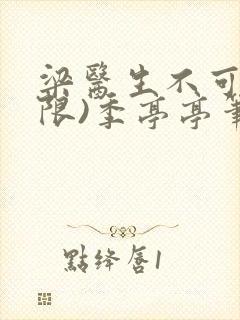 梁醫生不可
限)季亭亭筆
點絳唇1